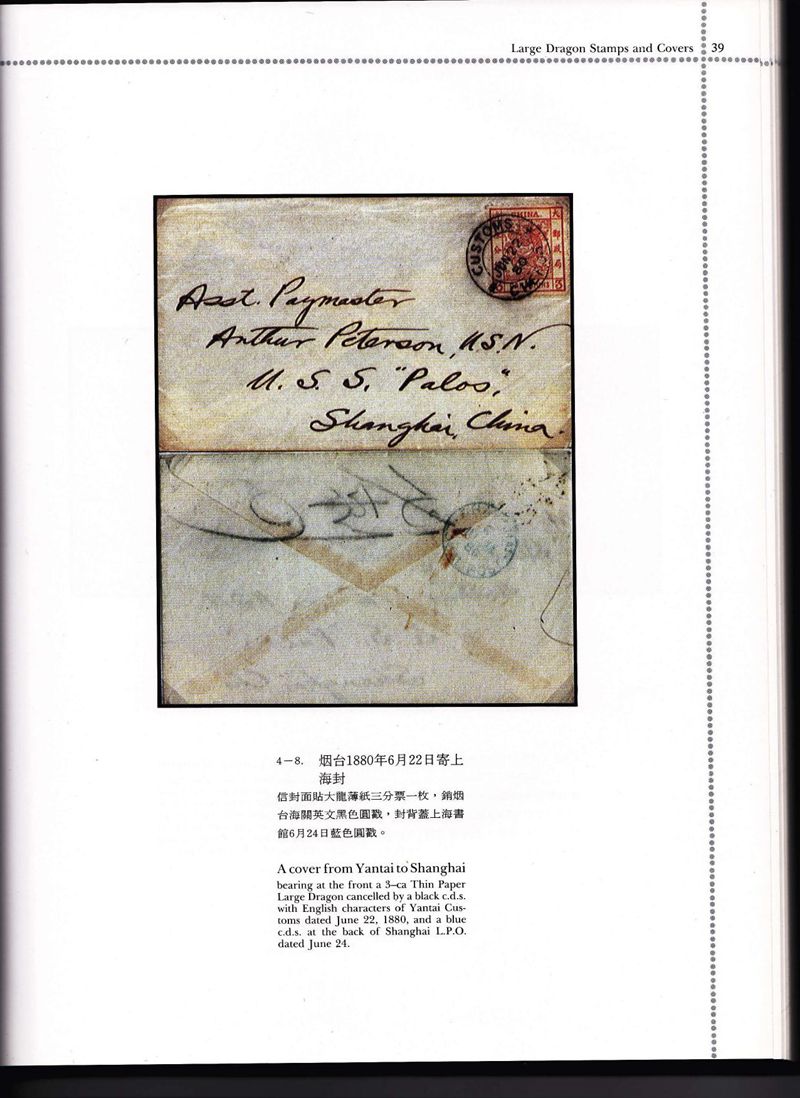 Large Dragon Stamps and Covers 39
CUSTOMS
JUN 22
80
CHINA
大
郵
政
局
Asst. Paymaster
Arthur Peterson, U.S.N.
U. S. S. "Palos",
Shanghai, China.
4—8. 烟台1880年6月22日寄上
海封
信封面貼大龍薄紙三分票一枚，銷烟
台海關英文黑色圓戳，封背蓋上海書
館6月24日藍色圓戳。
A cover from Yantai to Shanghai
bearing at the front a 3–ca Thin Paper
Large Dragon cancelled by a black c.d.s.
with English characters of Yantai Cus-
toms dated June 22, 1880, and a blue
c.d.s. at the back of Shanghai L.P.O.
dated June 24.